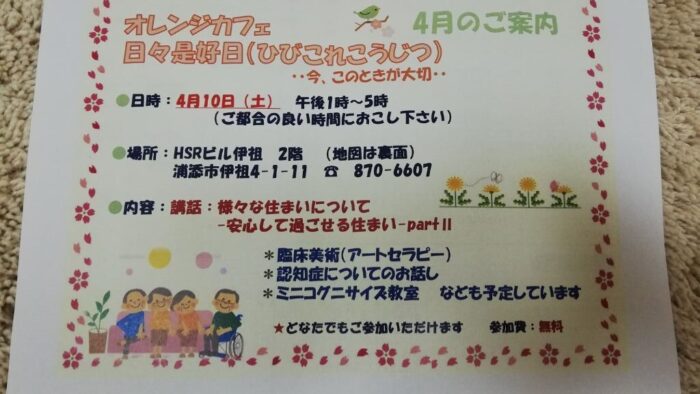 オレンジカフェ
4月のご案内
日々是好日(ひびこれこうじつ)
‥今、このときが大切‥
●日時：4月10日（土） 午後1時～5時
（ご都合の良い時間におこし下さい）
●場所：HSRビル伊祖 2階 （地図は裏面）
浦添市伊祖4-1-11 ☎ 870-6607
●内容：講話：様々な住まいについて
-安心して過ごせる住まい-partⅡ
＊臨床美術(アートセラピー)
＊認知症についてのお話し
＊ミニコグニサイズ教室 なども予定しています
★どなたでもご参加いただけます 参加費：無料